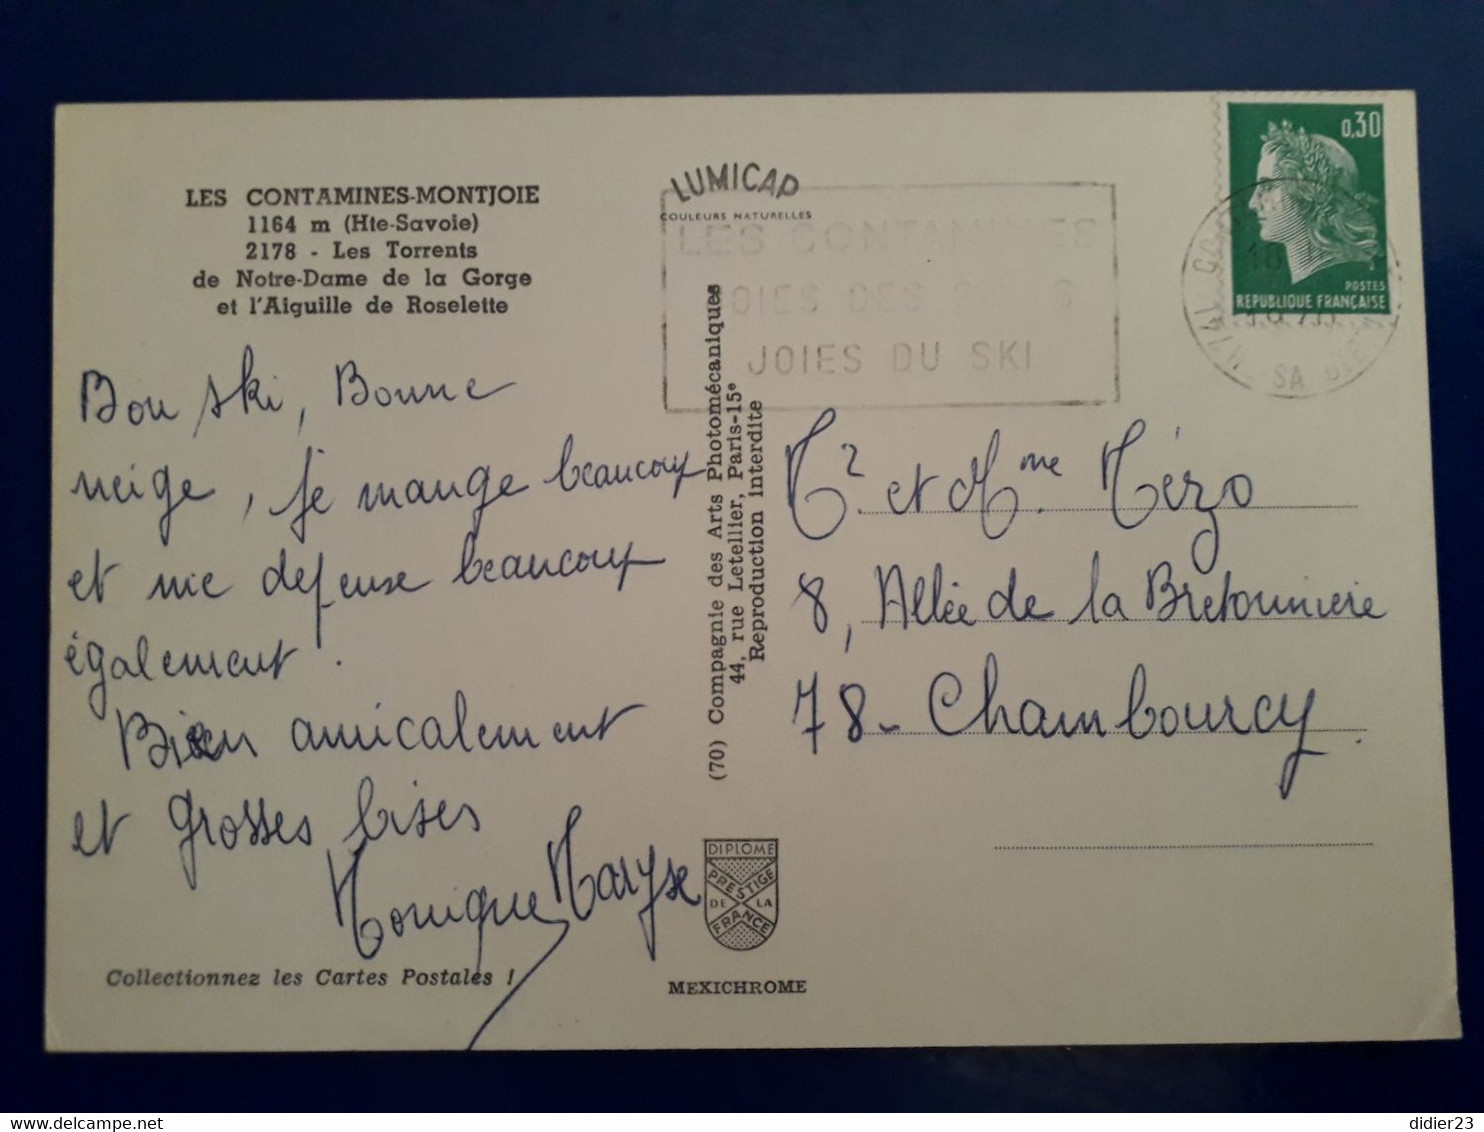 LES CONTAMINES-MONTJOIE
1164 m (Hte-Savoie)
2178 - Les Torrents
de Notre-Dame de la Gorge
et l'Aiguille de Roselette
Bon ski, Bonne
neige, je mange beaucoup
et me defense beaucoup
également.
Bien amicalement
et grosses bises
Monique Maryse
Collectionnez les Cartes Postales !
LUMICAP
COULEURS NATURELLES
LES CONTAMINES
JOIES DES
JOIES DU SKI
(70) Compagnie des Arts Photomécaniques
44, rue Letellier, Paris-15e
Reproduction interdite
DIPLOME
PRESTIGE
DE LA
FRANCE
MEXICHROME
0,30
POSTES
REPUBLIQUE FRANÇAISE
1970
Mr et Mme Mézo
8, Allée de la Bretonniere
78- Chambourcy.
didier23